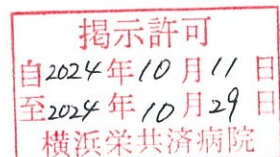 掲示許可
自2024年10月11日
至2024年10月29日
横浜栄共済病院